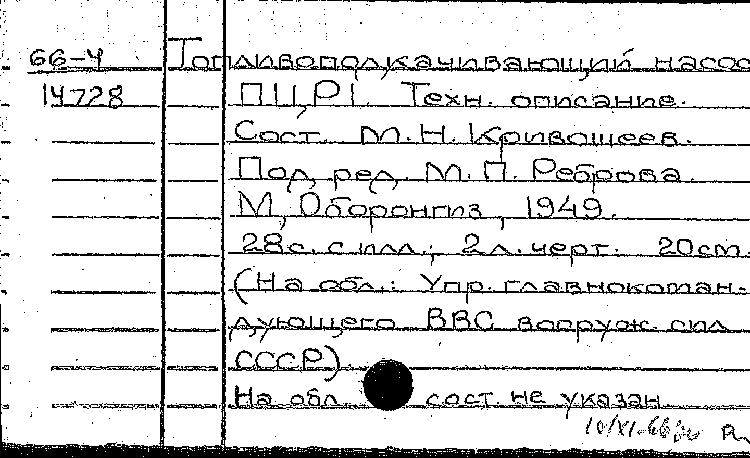 66-4
14728
Топливоподкачивающий насос
ПЦР1. Техн. описание.
Сост. М.Н. Кривошеев.
Под ред. М.П. Реброва.
М, Оборонгиз, 1949.
28с. с илл.; 2л. черт. 20см.
(На обл.: Упр. главнокоман-
дующего ВВС вооруж. сил
СССР).
На обл. сост. не указан
10/XI-66